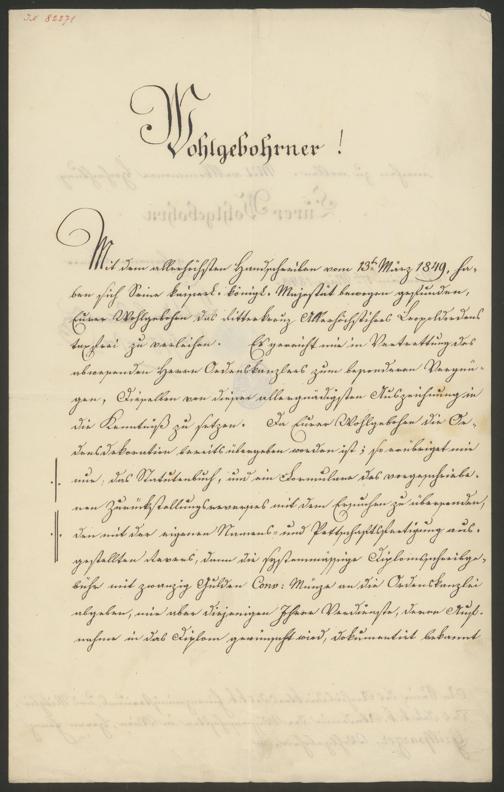 IN 82271
Wohlgebohrner!
Mit dem allerhöchsten Handschreiben vom 13ten März 1849, ha-
ben sich Seine kaiserl: königl: Majestät bewogen gefunden,
Eurer Wohlgebohren das Ritterkreuz Allerhöchstihres Leopoldordens
taxfrei zu verleihen. Es gereicht mir in Vertrettung des
abwesenden Herrn Ordenskanzlers zum besonderen Vergnü-
gen, Dieselben von dieser allergnädigsten Auszeichnung in
die Kenntniß zu setzen. Da Eurer Wohlgebohren die Or-
densdekoration bereits übergeben worden ist; so erübriget mir
nur, das Statutenbuch, und ein Formulare des vorgeschriebe-
nen Zurückstellungsreverses mit dem Ersuchen zu übersenden,
den mit der eigenen Namens- und Pettschaftsfertigung aus-
gestellten Revers, dann die systemmässige Diplomsschreibge-
bühr mit zwanzig Gulden Conv: Münze an die Ordenskanzlei
abgeben, mir aber diejenigen Ihrer Verdienste, deren Auf-
nahme in das Diplom gewünscht wird, dokumentirt bekannt